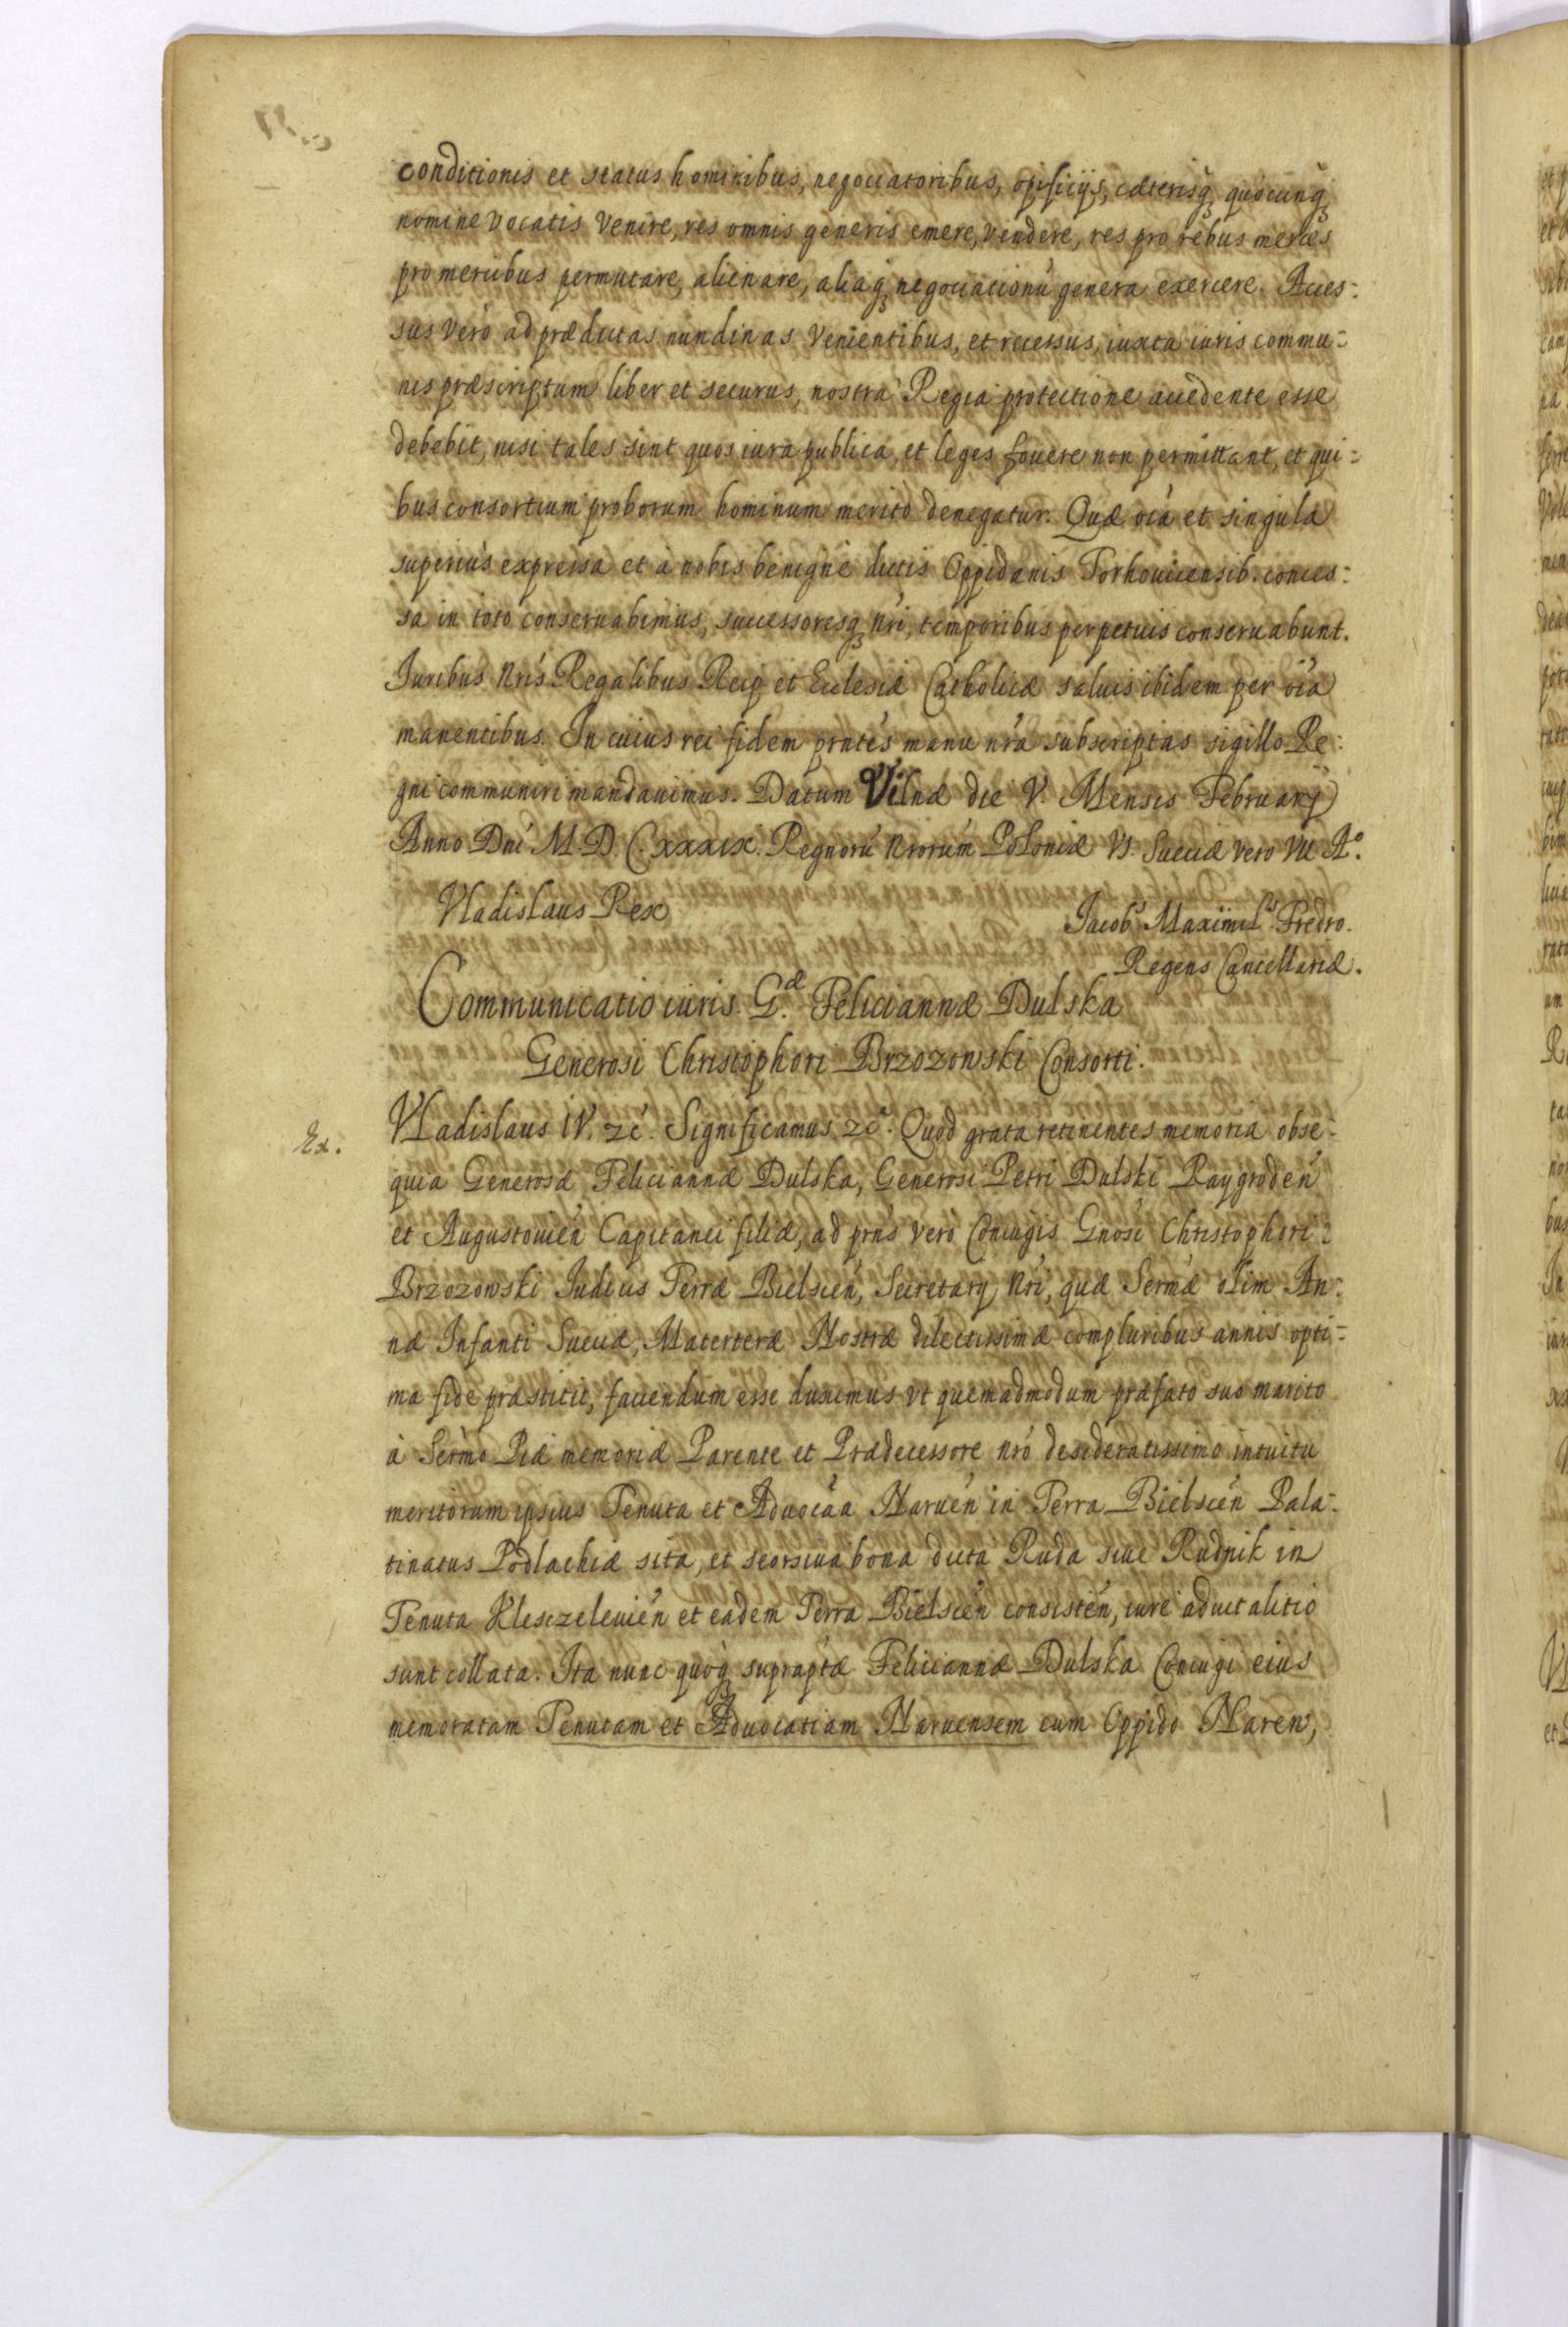 conditionis et status hominibus, negociatoribus, opificijs, cæterisq; quocunq;
nomine vocatis venire, res omnis generis emere, vendere, res pro rebus merces
pro mercibus permutare, alienare, aliaq; negociationú genera exercere. Acces-
sus veró ad prædictas nundinas venientibus, et recessus, iuxta iuris commu-
nis præscriptum liber et securus, nostrá Regiá protectione accedente esse
debebit, nisi tales sint quos iura publica et leges fouere non permittant, et qui-
bus consortium proborum hominum meritò denegatur. Quæ oía et singula
superiùs expressa et à nobis benignè dictis Oppidanis Torhouicensib. conces-
sa in toto conseruabimus, successoresq; nŕi, temporibus perpetuis conseruabunt.
Juribus Nŕis Regalibus Reip et Ecclesiæ Catholicæ saluis ibidem per oía
manentibus. In cuius rei fidem pŕntes manu nŕa subscriptas sigillo Re-
gni communiri mandauimus. Datum Vilnæ die V. Mensis February
Anno Dńi M. D. C. XXXIX. Regnorú Nrorúm Poloniæ VI. Sueciæ vero VII A°.
Vladislaus Rex
Jacob⁹ Maximil⁹ Fredro.
Regens Cancellariæ.
Communicatio iuris G.æ Feliciannæ Dulska
Generosi Christophori Brzozowski Consorti.
Ex.
Vladislaus IV. zć. Significamus zć. Quod grata retinentes memoria obse-
quia Generosæ Feliciannæ Dulska, Generosi Petri Dulski Raygrodeń
et Augustouień Capitanei filiæ, ad pŕns veró Coniugis Gnósi Christophori
Brzozowski Judicis Terræ Bielscień, Secretary Nŕi, quæ Sermæ olim An-
næ Infanti Sueciæ, Materteræ Nostræ dilectissimæ compluribus annis opti-
ma fide præstitit, faciendum esse duximus vt quemadmodum præfato suo marito
à Sermo Piæ memoriæ Parente et Prædecessore nŕo desideratissimo intuitu
meritorum ipsius Tenuta et Aduocáa Naruéń in Terra Bielscéń Pala-
tinatus Podlachiæ sita, et seorsiua bona dicta Ruda siue Rudnik in
Tenuta Klesczeleuień et eadem Terra Bielscień consistéń, iure aduitalitio
sunt collata. Ita nunc quoq; supraptæ Feliciannæ Dulska Coniugi eius
memoratam Tenutam et Aduocatiam Naruensem cum Oppido Narew,